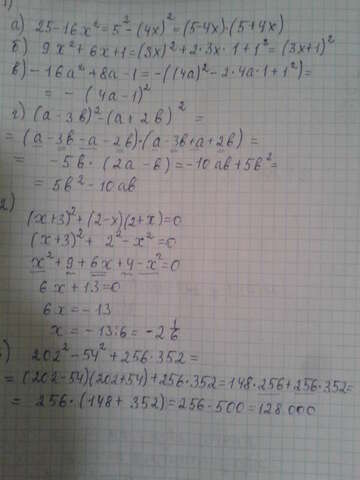 1)
а) 25-16x²=5²-(4x)²=(5-4x)·(5+4x)
б) 9x²+6x+1=(3x)²+2·3x·1+1²=(3x+1)²
в) -16a²+8a-1=-((4a)²-2·4a·1+1²)=
=-(4a-1)²
г) (a-3b)²-(a+2b)²=
=(a-3b-a-2b)·(a-3b+a+2b)=
= -5b·(2a-b)=-10ab+5b²=
= 5b²-10ab
2)
(x+3)²+(2-x)(2+x)=0
(x+3)²+2²-x²=0
x²+9+6x+4-x²=0
6x+13=0
6x=-13
x=-13:6=-2 1/6
3) 202²-54²+256·352=
=(202-54)(202+54)+256·352=148·256+256·352=
= 256·(148+352)=256·500=128.000